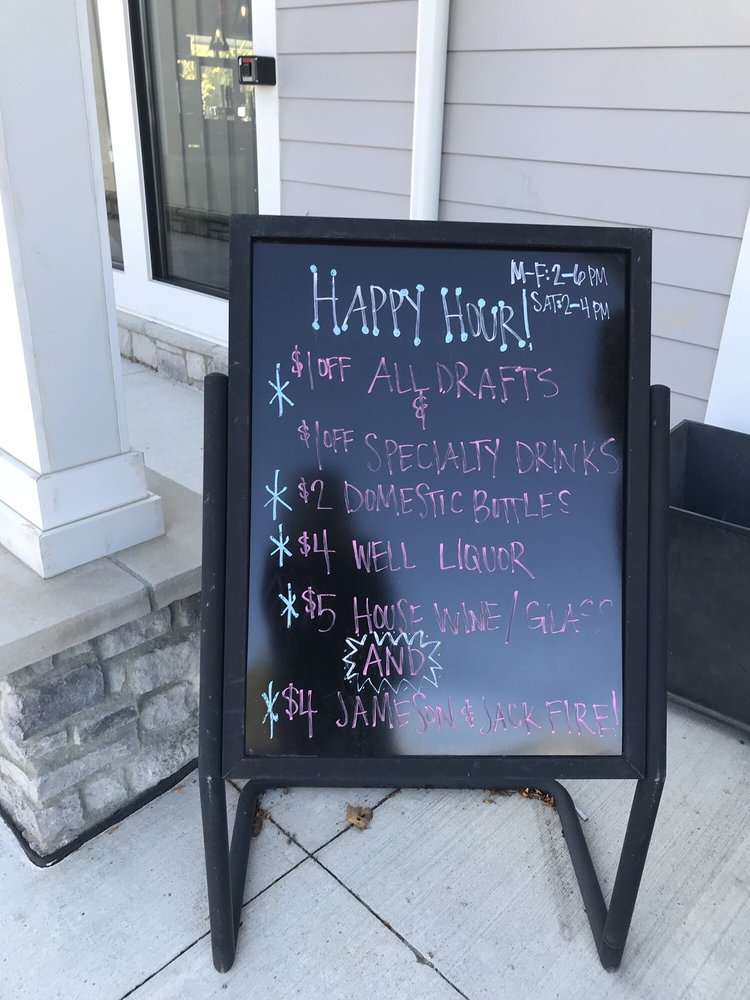 M-F: 2-6 PM
SAT: 2-4 PM
HAPPY HOUR!
* $1 OFF ALL DRAFTS
&
$1 OFF SPECIALTY DRINKS
* $2 DOMESTIC BOTTLES
* $4 WELL LIQUOR
* $5 HOUSE WINE / GLASS
AND
* $4 JAMESON & JACK FIRE!